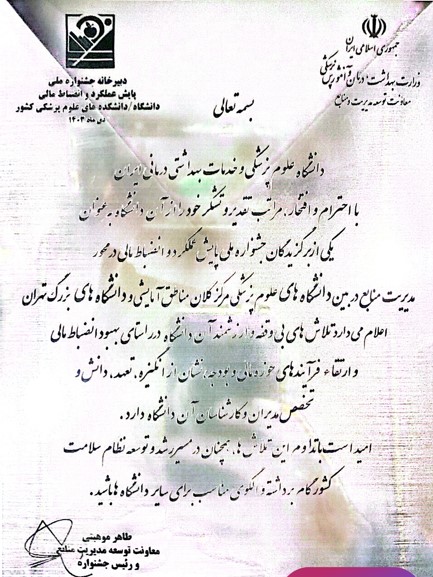 جمهوری اسلامی ایران
وزارت بهداشت، درمان و آموزش پزشکی
معاونت توسعه مدیریت و منابع
دبیرخانه جشنواره ملی
پایش عملکرد و انضباط مالی
دانشگاه/دانشکده های علوم پزشکی کشور
دی ماه ۱۴۰۳
بسمه تعالی
دانشگاه علوم پزشکی و خدمات بهداشتی درمانی ایران
با احترام و افتخار، مراتب تقدیر و تشکر خود را از آن دانشگاه به عنوان
یکی از برگزیدگان جشنواره ملی پایش عملکرد و انضباط مالی در محور
مدیریت منابع در بین دانشگاه های علوم پزشکی مرکز کلان مناطق آمایشی و دانشگاه های بزرگ تهران
اعلام می دارد تلاش های بی وقفه و ارزشمند آن دانشگاه در راستای بهبود انضباط مالی
و ارتقاء فرآیندهای حوزه مالی و بودجه، نشان از انگیزه، تعهد، دانش و
تخصص مدیران و کارشناسان آن دانشگاه دارد.
امید است با تداوم این تلاش ها، همچنان در مسیر رشد و توسعه نظام سلامت
کشور گام برداشته و الگوی مناسب برای سایر دانشگاه ها باشید.
طاهر موهبتی
معاونت توسعه مدیریت منابع
و رئیس جشنواره